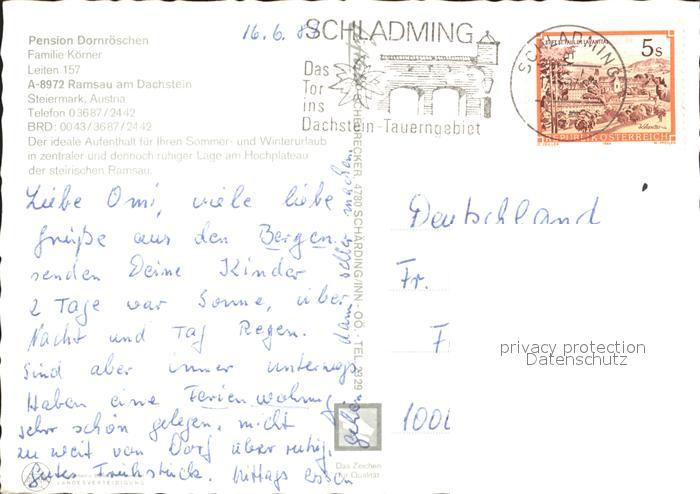 16.6.87
SCHLADMING
Das
Tor
ins
Dachstein-Tauerngebiet
SCHLADMING
5 S
REPUBLIK ÖSTERREICH
Pension Dornröschen
Familie Körner
Leiten 157
A-8972 Ramsau am Dachstein
Steiermark, Austria
Telefon 03687/2442
BRD: 0043/3687/2442
Der ideale Aufenthalt für Ihren Sommer- und Winterurlaub
in zentraler und dennoch ruhiger Lage am Hochplateau
der steirischen Ramsau.
Liebe Omi, viele liebe
Grüße aus den Bergen
senden Deine Kinder
2 Tage war Sonne, über
Nacht und Tag Regen.
Sind aber immer unterwegs.
Haben eine Ferienwohnung
sehr schön gelegen, nicht
zu weit von Dorf aber ruhig.
Gutes Frühstück. Mittags essen
gehen dann selber machen
4780 SCHÄRDING/INN - OÖ. - TEL.
Deutschland
Fr.
F
100
privacy protection
Datenschutz
Das Zeichen
für Qualität
LANDESVERTEIDIGUNG